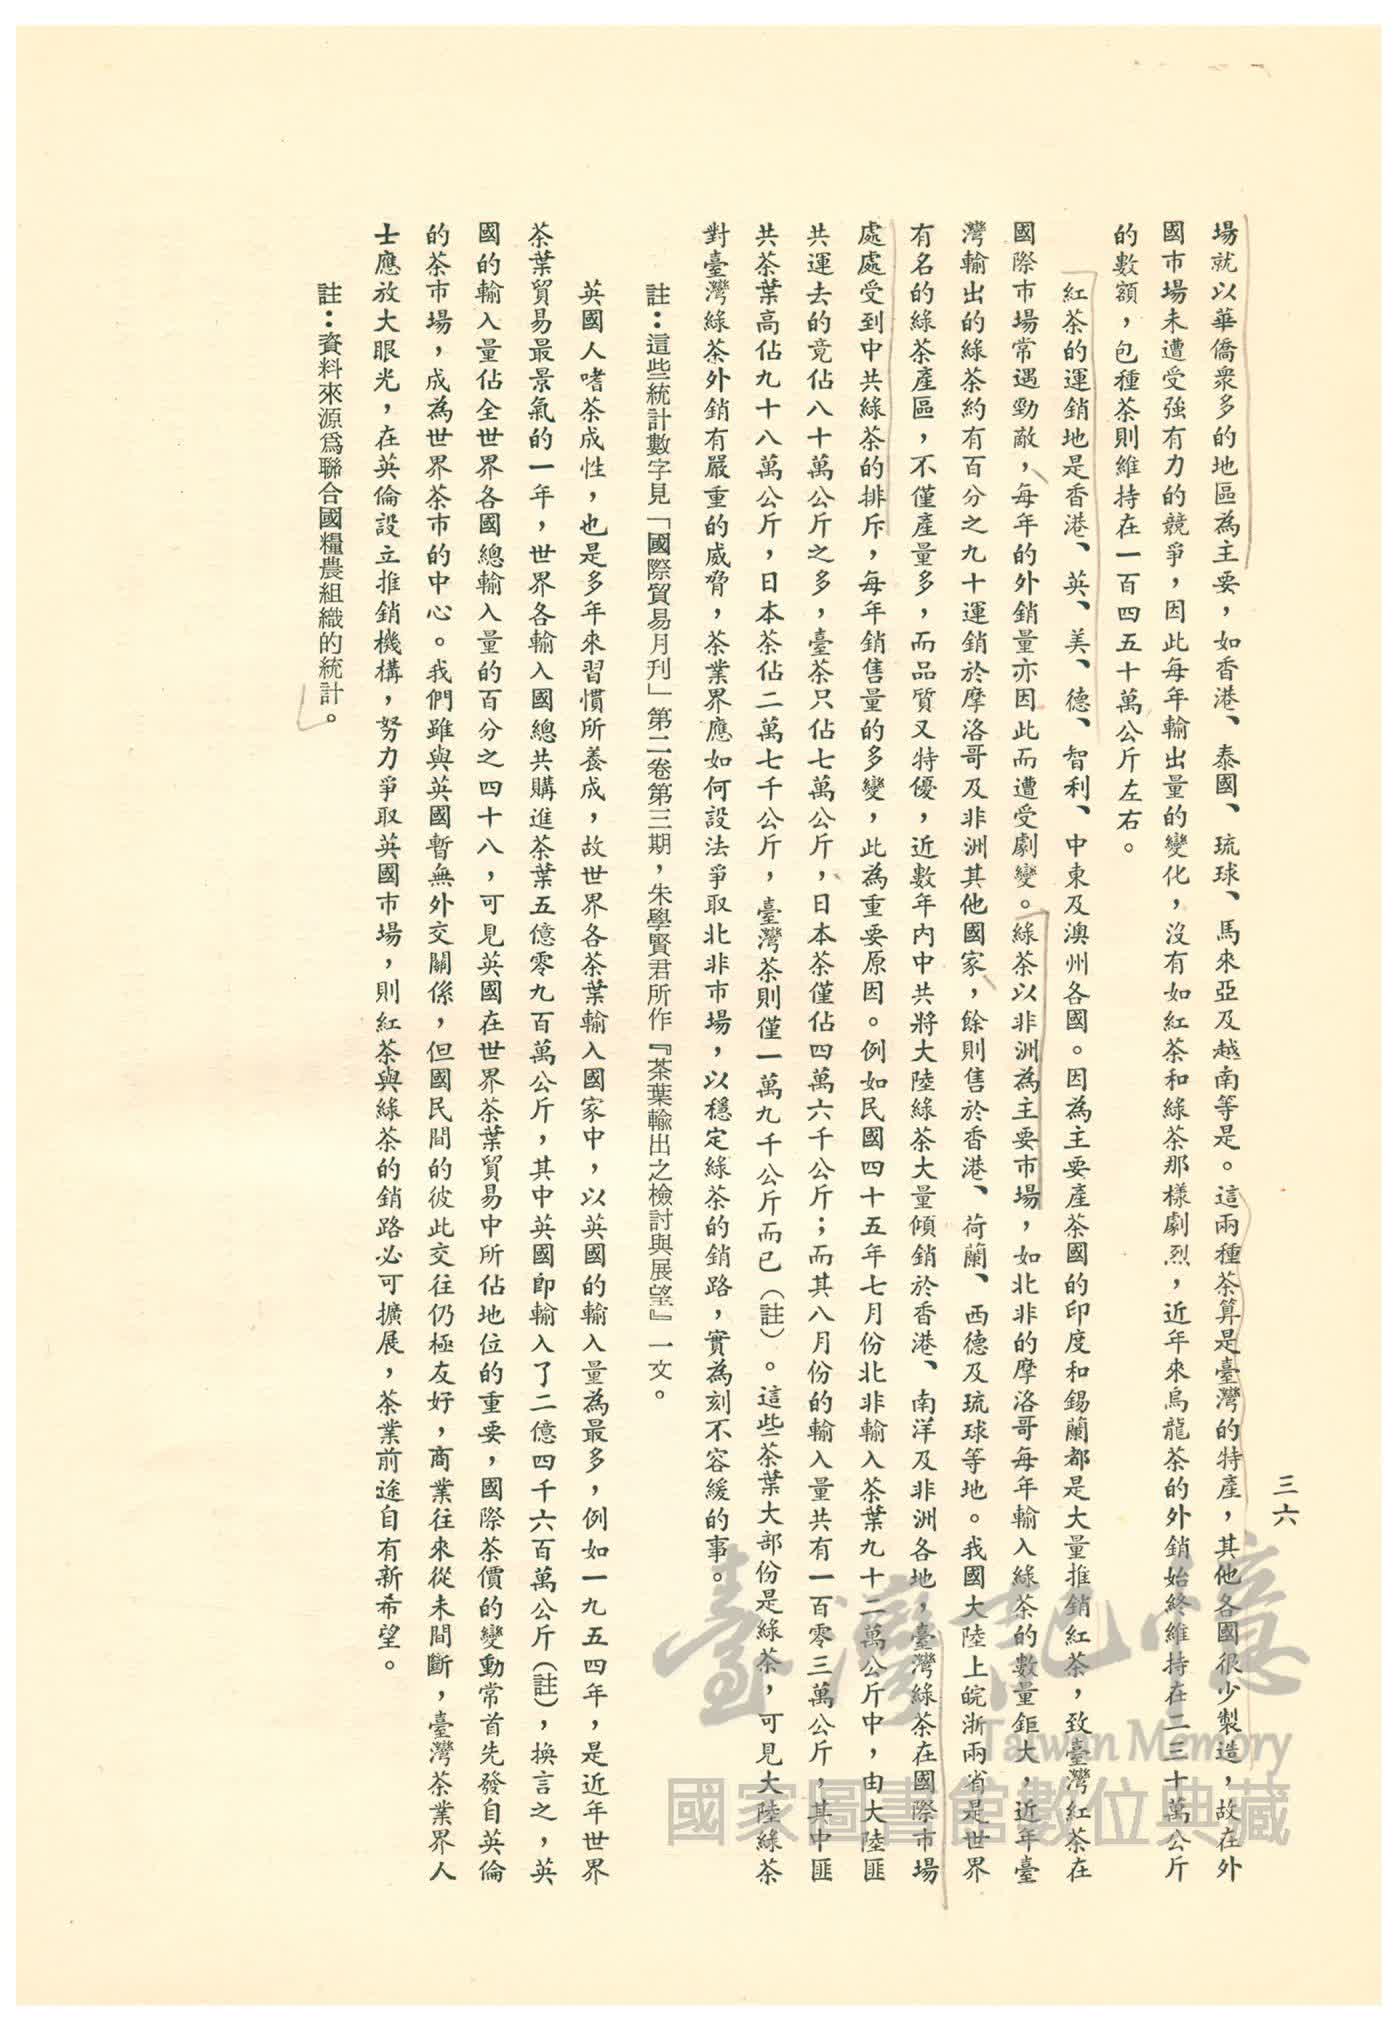 三六
場就以華僑衆多的地區為主要，如香港、泰國、琉球、馬來亞及越南等是。這兩種茶算是臺灣的特產，其他各國很少製造，故在外
國市場未遭受強有力的競爭，因此每年輸出量的變化，沒有如紅茶和綠茶那樣劇烈，近年來烏龍茶的外銷始終維持在二三十萬公斤
的數額，包種茶則維持在一百四五十萬公斤左右。
紅茶的運銷地是香港、英、美、德、智利、中東及澳州各國。因為主要產茶國的印度和錫蘭都是大量推銷紅茶，致臺灣紅茶在
國際市場常遇勁敵，每年的外銷量亦因此而遭受劇變。綠茶以非洲為主要市場，如北非的摩洛哥每年輸入綠茶的數量鉅大，近年臺
灣輸出的綠茶約有百分之九十運銷於摩洛哥及非洲其他國家，餘則售於香港、荷蘭、西德及琉球等地。我國大陸上皖浙兩省是世界
有名的綠茶產區，不僅產量多，而品質又特優，近數年內中共將大陸綠茶大量傾銷於香港、南洋及非洲各地，臺灣綠茶在國際市場
處處受到中共綠茶的排斥，每年銷售量的多變，此為重要原因。例如民國四十五年七月份北非輸入茶葉九十二萬公斤中，由大陸匪
共運去的竟佔八十萬公斤之多，臺茶只佔七萬公斤，日本茶僅佔四萬六千公斤；而其八月份的輸入量共有一百零三萬公斤，其中匪
共茶葉高佔九十八萬公斤，日本茶佔二萬七千公斤，臺灣茶則僅一萬九千公斤而已（註）。這些茶葉大部份是綠茶，可見大陸綠茶
對臺灣綠茶外銷有嚴重的威脅，茶業界應如何設法爭取北非市場，以穩定綠茶的銷路，實為刻不容緩的事。
註：這些統計數字見「國際貿易月刊」第二卷第三期，朱學賢君所作『茶葉輸出之檢討與展望』一文。
英國人嗜茶成性，也是多年來習慣所養成，故世界各茶葉輸入國家中，以英國的輸入量為最多，例如一九五四年，是近年世界
茶葉貿易最景氣的一年，世界各輸入國總共購進茶葉五億零九百萬公斤，其中英國即輸入了二億四千六百萬公斤（註），換言之，英
國的輸入量佔全世界各國總輸入量的百分之四十八，可見英國在世界茶葉貿易中所佔地位的重要，國際茶價的變動常首先發自英倫
的茶市場，成為世界茶市的中心。我們雖與英國暫無外交關係，但國民間的彼此交往仍極友好，商業往來從未間斷，臺灣茶業界人
士應放大眼光，在英倫設立推銷機構，努力爭取英國市場，則紅茶與綠茶的銷路必可擴展，茶業前途自有新希望。
註：資料來源爲聯合國糧農組織的統計。
臺灣記憶
Taiwan Memory
國家圖書館數位典藏